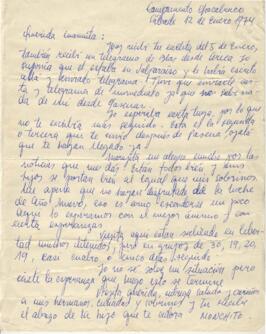 Campamento Chacabuco
Sábado 12 de Enero 1974
Querida mamita:
Hoy recibí tu cartita del 5 de Enero,
también recibí un telegrama de Blas desde Arica se
suponía que él estaba en Valparaíso y le había escrito
allá y enviado telegrama. Ayer que enviarle
y telegrama de inmediato ya que no sabía na
da de su
Yo esperaba carta tuya, por lo que
no te escribía más seguido. Esta es la segunda
o tercera que te envío después de pascua ojalá
que te hayan llegado ya.
Mamita me alegro mucho por las
noticias que me das. Están todos bien y mis
hijos se portan bien al igual que mis sobrinos.
Me apena que no hayan disfrutado de la noche
de año nuevo, eso es como esconderse un poco
aquí lo esperamos con el mejor ánimo y con
esperanzas.
Viejita aquí están saliendo en liber
tad muchos detenidos, pero en grupos de 30, 19, 20,
19, casi cuatro o cinco días seguidos.
Yo no sé sobre mi situación pero
existe la esperanza que luego esto se termine
Viejita querida, cariños
a mis hermanos, cuñados y sobrinos y tú recibe
el abrazo de tu hijo que te adora MONCHITO.